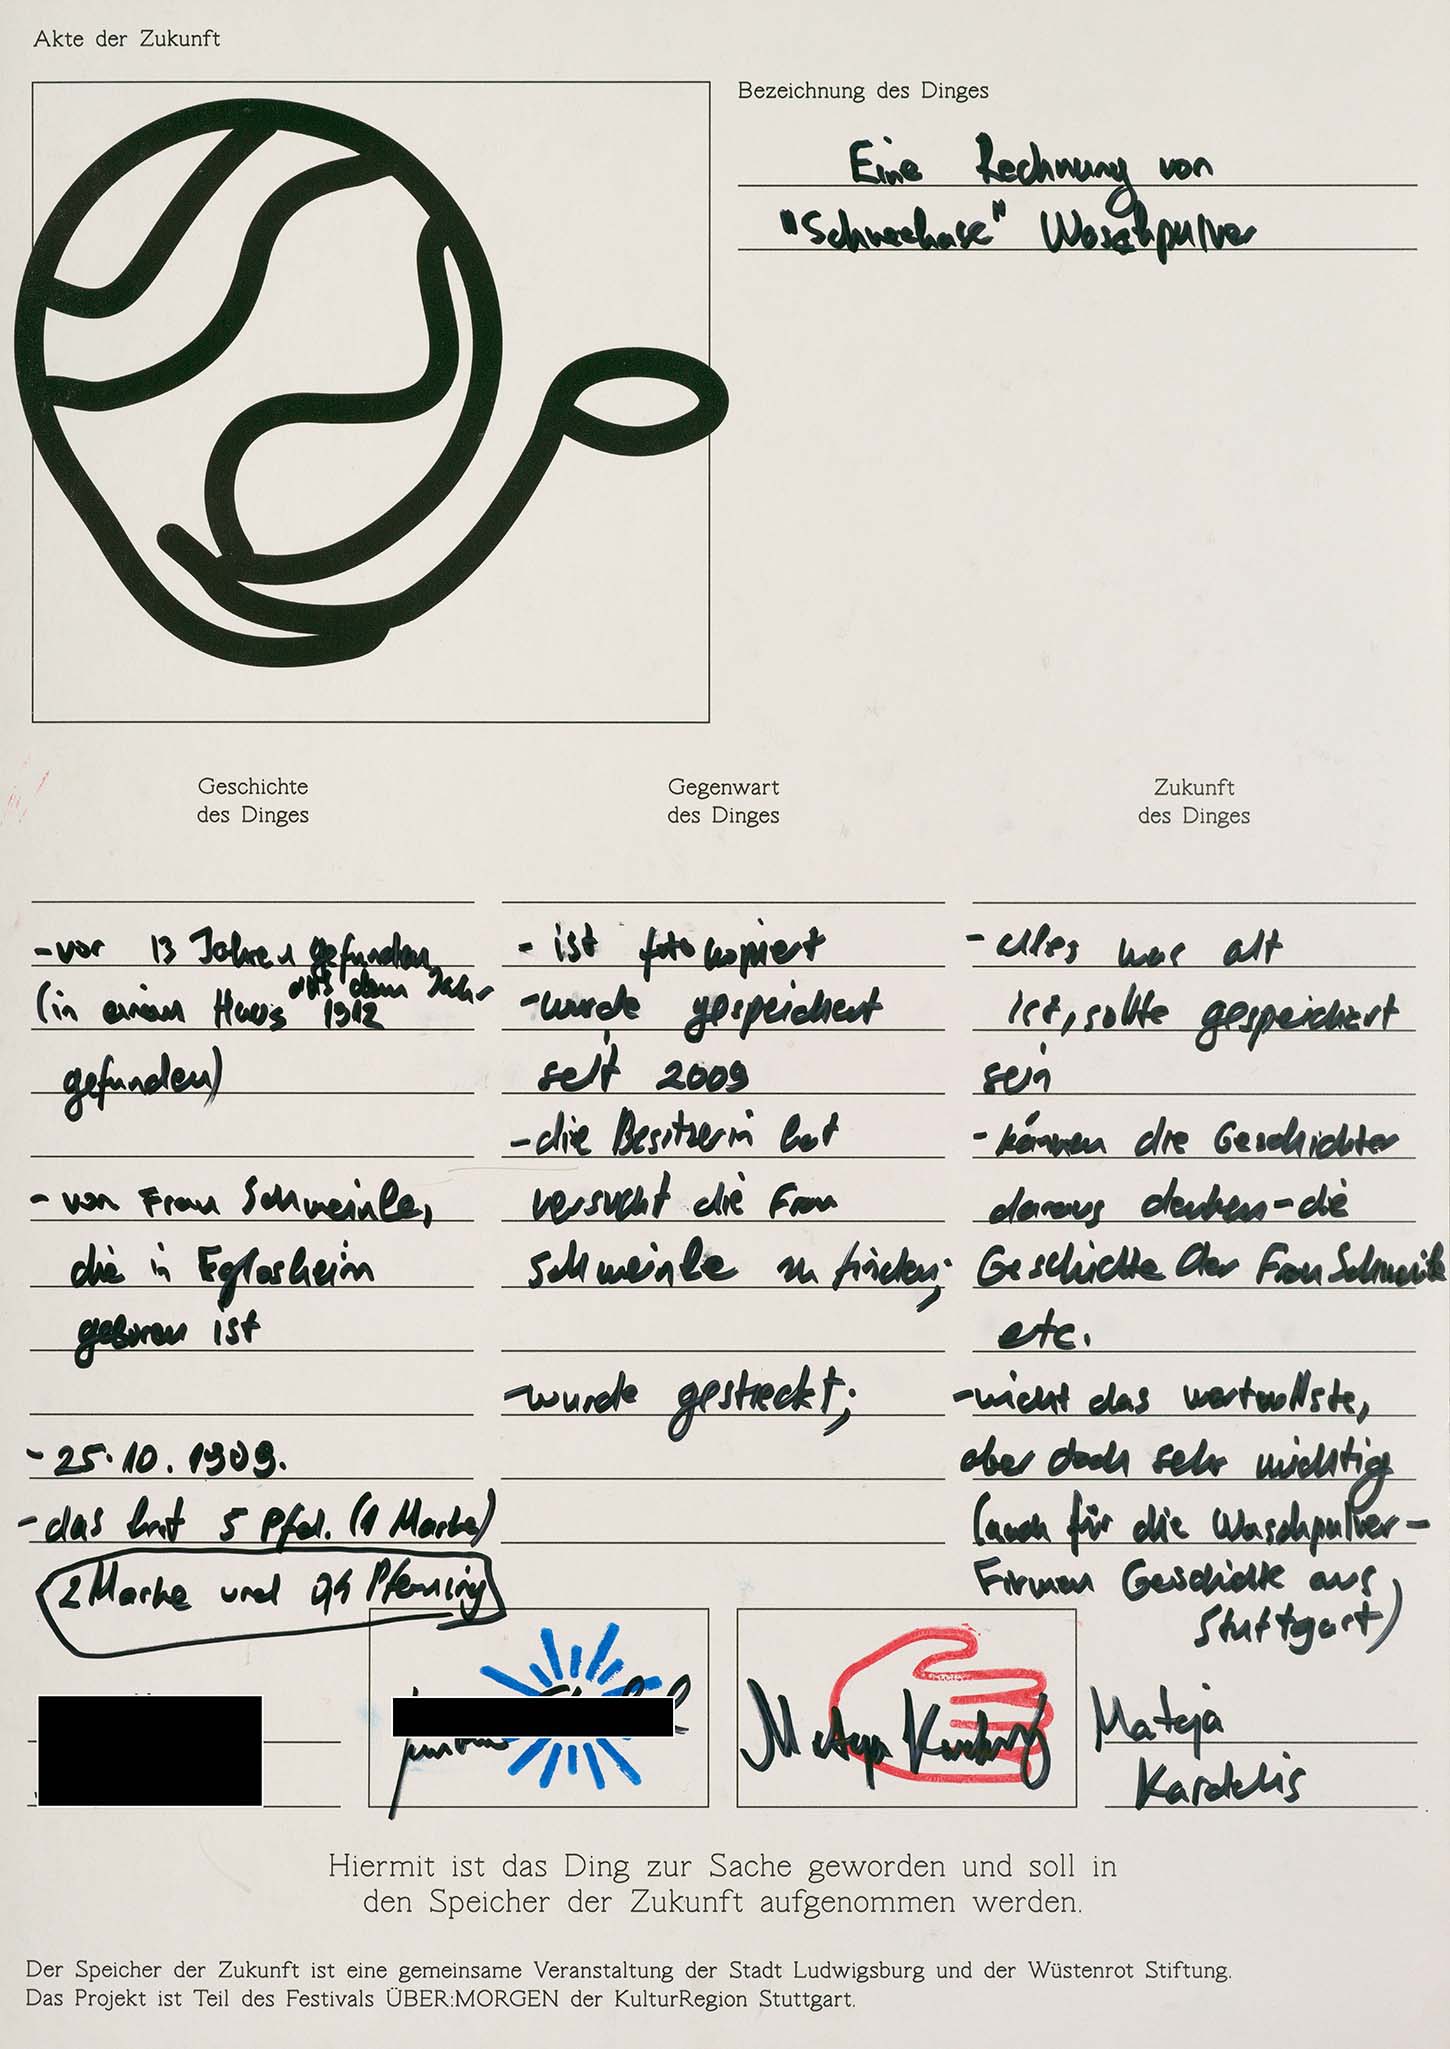 Akte der Zukunft
Bezeichnung des Dinges
Eine Rechnung von
"Schneehase" Waschpulver
Geschichte
des Dinges
- vor 13 Jahren gefunden
(in einem Haus aus dem Jahr
1912
gefunden)
- von Frau Schweinle,
die in Eglosheim
geboren ist
- 25.10.1909.
- das hat 5 Pfd. (1 Marke)
2 Marke und 0,4 Pfenning
Gegenwart
des Dinges
- ist fotokopiert
- wurde gespeichert
seit 2009
- die Besitzerin hat
versucht die Frau
Schweinle zu finden;
- wurde gestreckt;
Zukunft
des Dinges
- alles was alt
ist, sollte gespeichert
sein
- können die Geschichten
daraus denken - die
Geschichte der Frau Schweinle
etc.
- nicht das wertvollste,
aber doch sehr wichtig
(auch für die Waschpulver-
Firmen Geschichte aus
Stuttgart)
Mateja
Mateja
Kardelis
Hiermit ist das Ding zur Sache geworden und soll in
den Speicher der Zukunft aufgenommen werden.
Der Speicher der Zukunft ist eine gemeinsame Veranstaltung der Stadt Ludwigsburg und der Wüstenrot Stiftung.
Das Projekt ist Teil des Festivals ÜBER:MORGEN der KulturRegion Stuttgart.